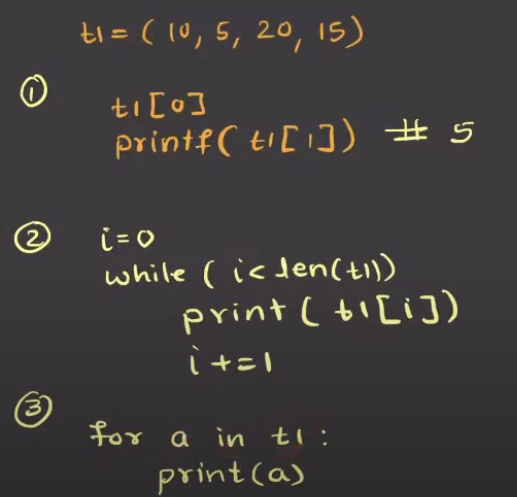 t1 = ( 10, 5, 20, 15)
①
t1[0]
printf( t1[1]) # 5
② i=0
while ( i< len(t1))
print ( t1[i])
i +=1
③
for a in t1 :
print(a)